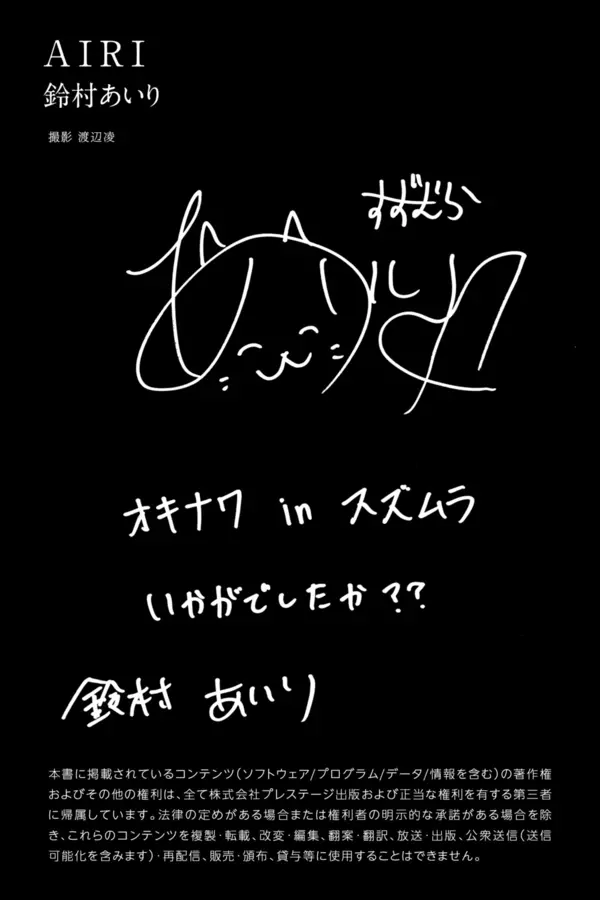 AIRI
鈴村あいり
撮影 渡辺凌
すずむら
オキナワ in スズムラ
いかがでしたか??
鈴村 あいり
本書に掲載されているコンテンツ(ソフトウェア/プログラム/データ/情報を含む)の著作権
およびその他の権利は、全て株式会社プレステージ出版および正当な権利を有する第三者
に帰属しています。法律の定めがある場合または権利者の明示的な承諾がある場合を除
き、これらのコンテンツを複製・転載、改変・編集、翻案・翻訳、放送・出版、公衆送信(送信
可能化を含みます)・再配信、販売・頒布、貸与等に使用することはできません。